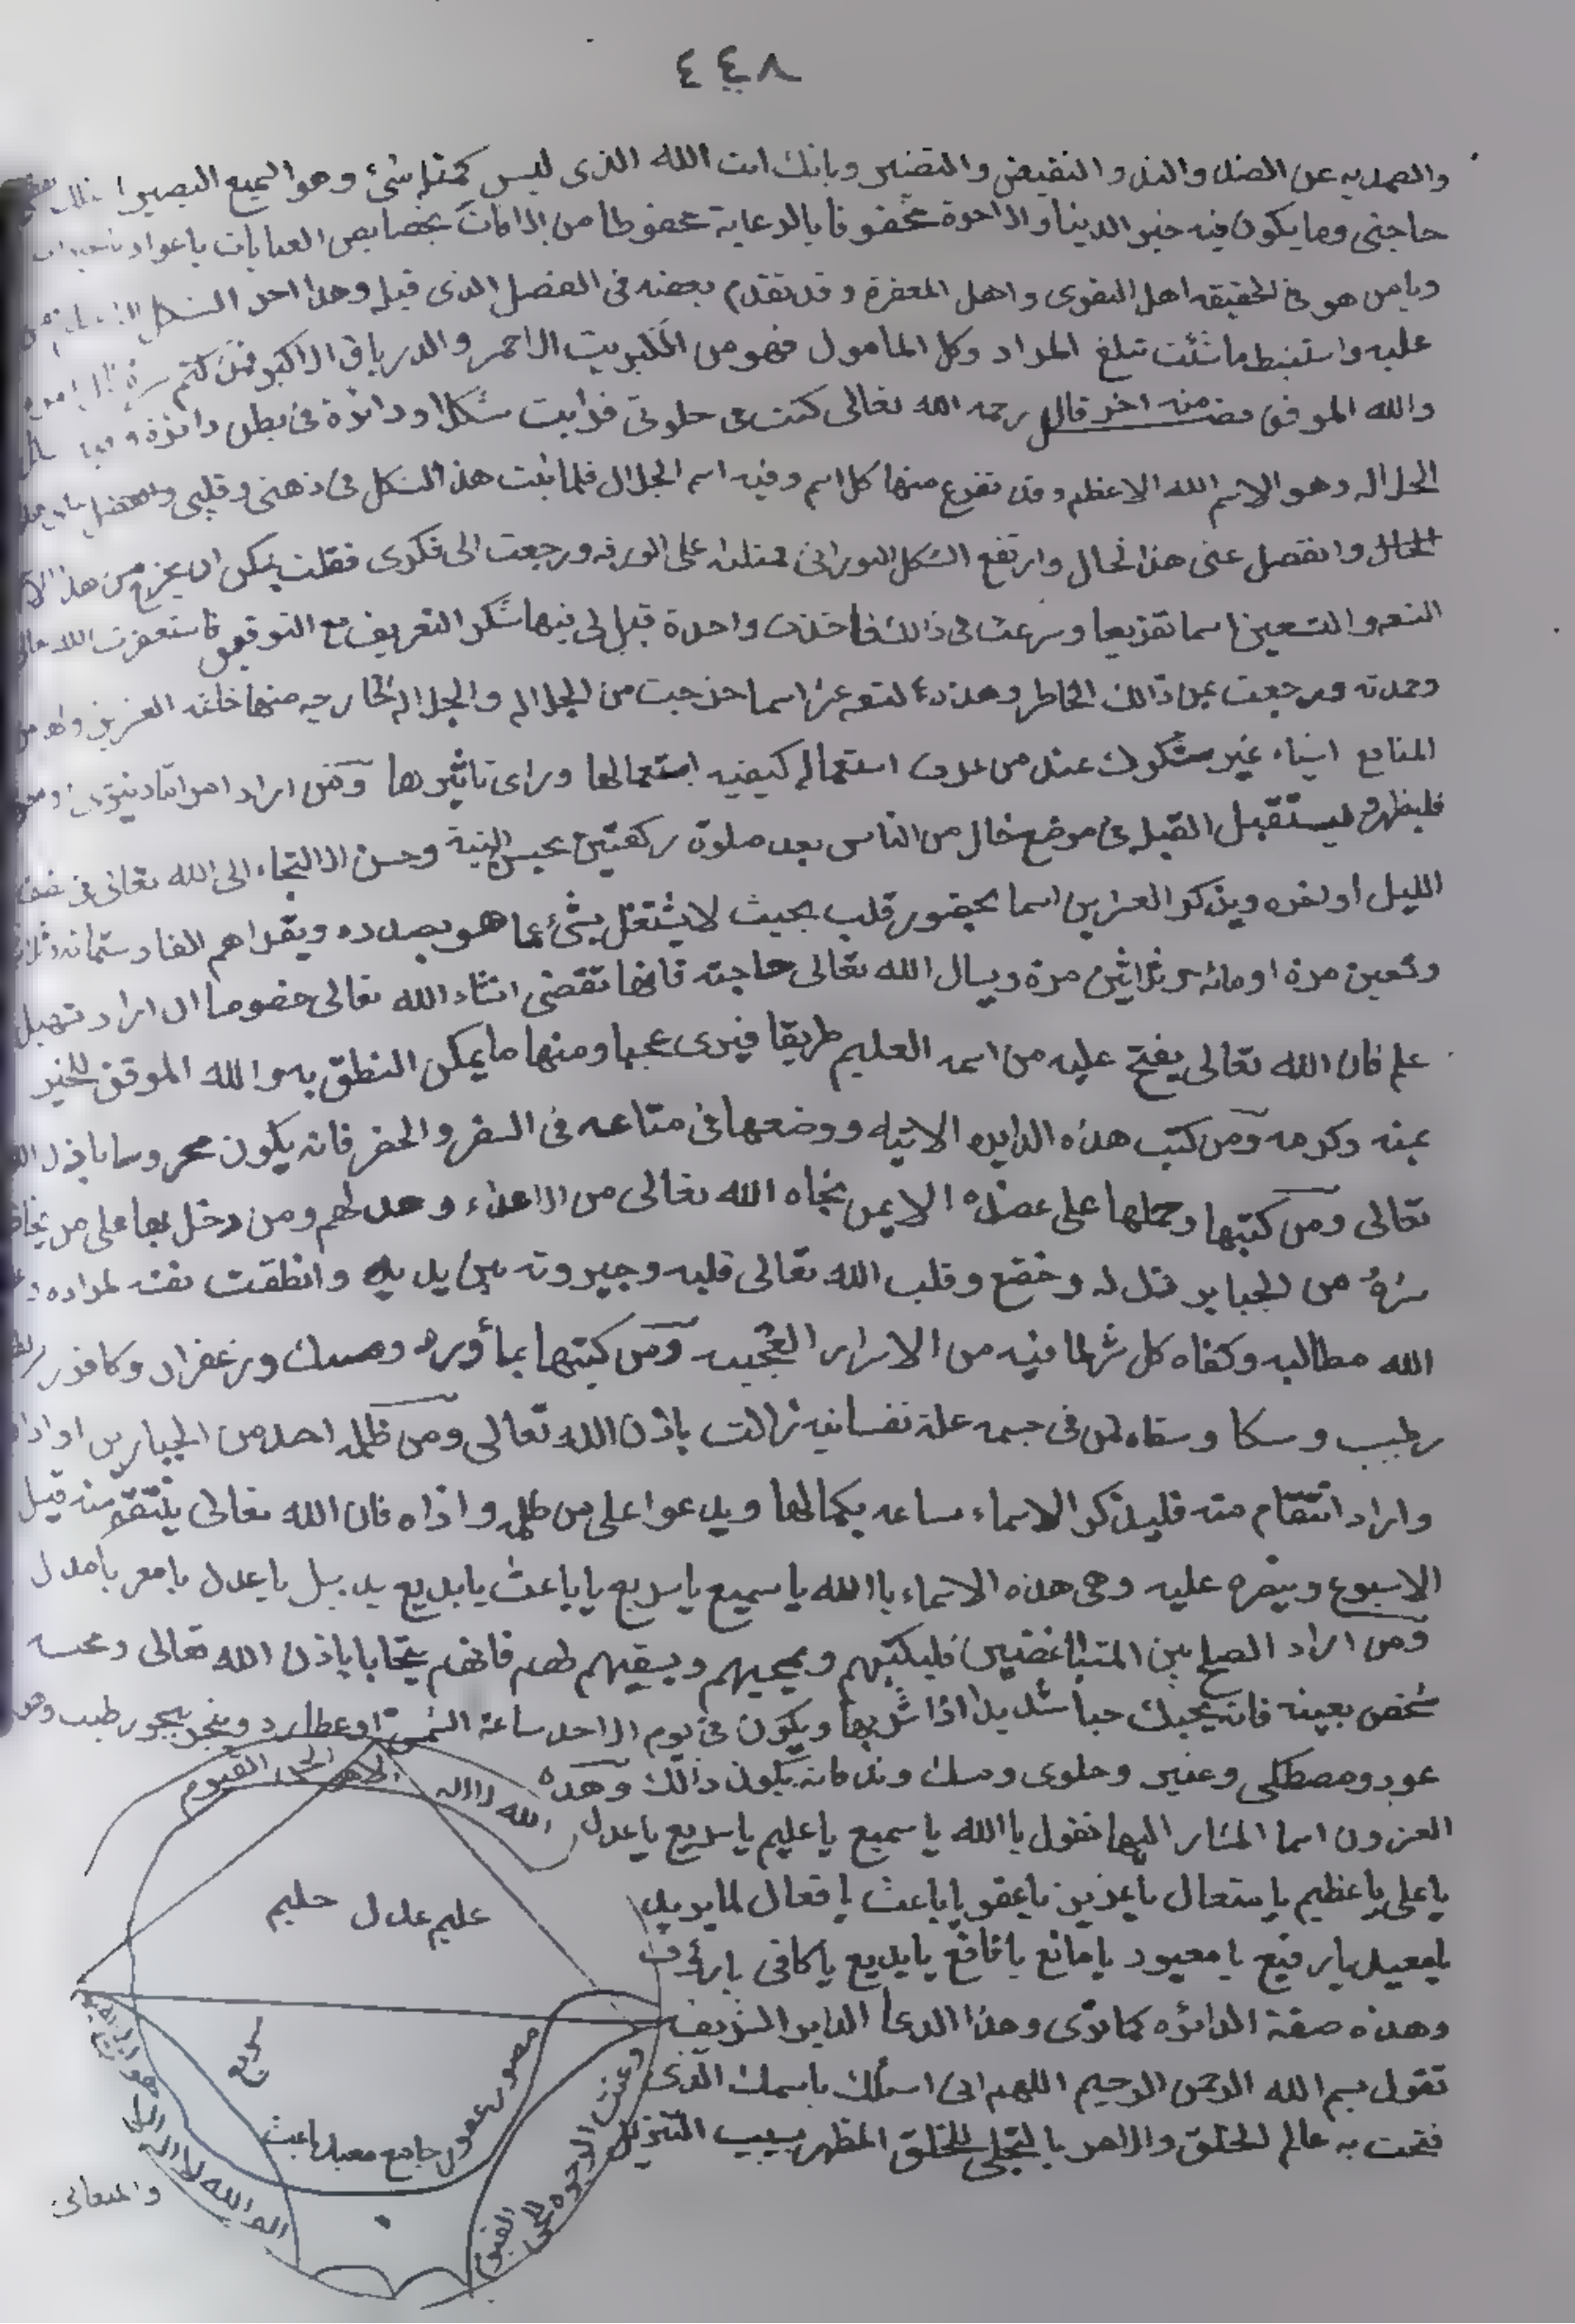 ٤٤٨
والصمديه عن الضد والند والنقيض والنضير وبانك انت الله الذى ليس كمثله شئ وهو السميع البصير
حاجتى وما يكون فيه خير الدينا والاخرة محفوفا بالرعاية محفوظا من الافات بخصايص العنايات
ويامن هو فى الحقيقه اهل التقوى واهل المغفرة وقد تقدم بعضه فى الفصل الذى قبله وهذا اخر الشكل
عليه واستنبط ما شئت تبلغ المراد وكل المامول فهو من الكبريت الاحمر والدرياق الاكبر فمن كتم سره
والله الموفق منه اخر قال رحمه الله تعالى كنت فى خلوتى فرايت شكلا ودائرة فى بطن دائرة
الجلاله وهو الاسم الله الاعظم وقد تفرع منها كل اسم وفيه اسم الجلال فلما ثبت هذا الشكل فى ذهنى وقلبى
الحال وانفصل عنى هذا الحال وارتفع الشكل النورانى فمثلته على الورقه ورجعت الى فكرى فقلت يمكن ان يخرج من هذا
التسعه والتسعين اسما تفريعا وسرعت فى ذالك فاخذت واحدة قيل لى فيها شكر التعريف مع التوقيف فاستغفرت الله
وحمدته ورجعت عن ذالك الخاطر وهذه التسعه عشر اسما خرجت من الجلاله والجلاله الخارجه منها خاتمه العشرين
المنافع اشياء غير مشكوك عند من عرف استعماله كيفيه استعمالها وراى تاثيرها ومن اراد امر اتا دنيوى
فليظهر وليستقبل القبله فى موضع خال من الناس بعد صلوة ركعتين بحسن النية وحسن الالتجاء الى الله تعالى فى نصف
الليل او اخره ويذكر العشرين اسما بحضور قلب بحيث لا يشتغل بشئ عما هو بصدده ويقراهم الفا وستمائه
وتسعين مرة او مائه وثلاثين مرة ويسال الله تعالى حاجته فانها تقضى انشاء الله تعالى خصوصا ان اراد تسهيل
علم فان الله تعالى يفتح عليه من اسمه العليم طريقا فيرى عجبا ومنها ما يمكن النطق به والله الموفق للخير
بمنه وكرمه ومن كتب هذه الدايره الاتيه ووضعها فى متاعه فى السفر والحضر فانه يكون محروسا باذن
تعالى ومن كتبها وحملها على عضده الايمن نجاه الله تعالى من الاعداء وخذلهم ومن دخل بها على من يخاف
شره من الجبابر ذل له وخضع وقلب الله تعالى قلبه وجبروته بين يديه وانطلقت نفسه لمراده
الله مطالبه وكفاه كل شر لما فيه من الاسرار العجيبه ومن كتبها بماورد ومسك وزعفران وكافور
رطيب وسكا وسقاه لمن فى جسمه علة نفسانيه زالت باذن الله تعالى ومن ظلمه احد من الجبارين
واراد انتقام منه فليذكر الاسماء ساعه بكمالها ويدعوا على من ظلمه واذاه فان الله تعالى ينتقم منه قبل
الاسبوع وينصره عليه وهى هذه الاسماء يا الله يا سميع يا سريع يا باعث يا بديع يا عدل يا معز يا مذل
ومن اراد الصلح بين المتباغضيين فليكتبهم ويمحيهم ويسقيهم لهم فانهم يتحابا باذن الله تعالى
شخص بعينه فانه يحبك حبا شديدا اذا شربها ويكون فى يوم الاحد ساعة الشمس او عطارد ويبخر ببخور طيب
عود ومصطكى وعنبر وحلوى ومسك وند فانه يكون ذالك وهذه
العشرون اسما المشار اليها تقول يا الله يا سميع يا عليم يا سريع يا عدل
يا على يا عظيم يا متعال يا عزيز يا عفو يا باعث يا فعال لما يريد
يا معيد يا رفيع يا معبود يا مانع يا نافع يا بديع يا كافى يا رؤف
وهذه صفة الدائره كما ترى وهذا الدعا الداير الشريف
تقول بسم الله الرحمن الرحيم اللهم انى اسئلك باسمك الذى
فتحت به عالم الخلق والامر بالتجلى للخلق المظهر بسبب التنزيل
الله لا اله الا هو الحى القيوم
عليم عدل حليم
سريع
مصور عفو جامع معيد باعث
وعنت الوجوه للحى القيوم
الم الله لا اله الا هو
والمتعالى